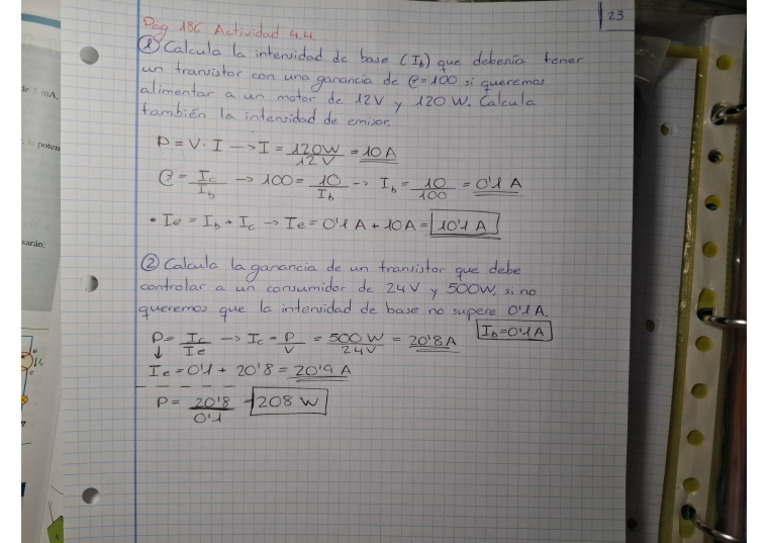 23
Pág 186 Actividad 4.4.
① Calcula la intensidad de base (Ib) que debería tener
un transistor con una ganancia de β=100 si queremos
alimentar a un motor de 12V y 120 W. Calcula
también la intensidad de emisor.
P = V · I → I = 120W / 12V = 10 A
β = Ic / Ib → 100 = 10 / Ib → Ib = 10 / 100 = 0'1 A
• Ie = Ib + Ic → Ie = 0'1 A + 10A = 10'1 A
② Calcula la ganancia de un transistor que debe
controlar a un consumidor de 24V y 500W, si no
queremos que la intensidad de base no supere 0'1A.
Ib=0'1A
P = Ic / Ie → Ic = P / V = 500 W / 24V = 20'8A
↓
Ie = 0'1 + 20'8 = 20'9 A
P = 20'8 / 0'1 = 208 W
de 5 mA,
la poten
sarán: